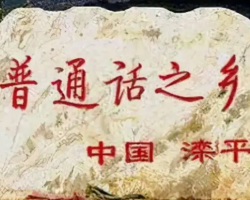 普通话之乡
中国 滦平